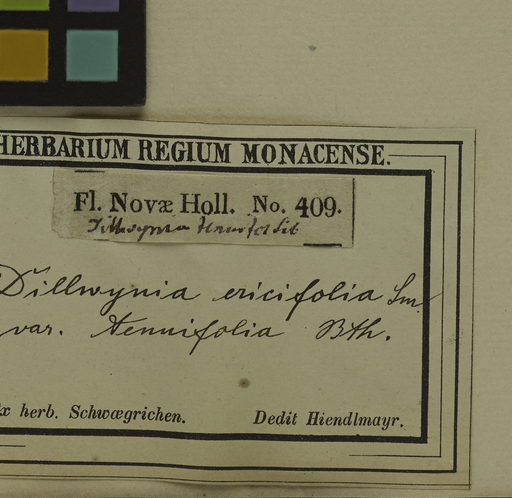 HERBARIUM REGIUM MONACENSE.
Fl. Novæ Holl. No. 409.
Dillwynia tenuifol Sib
Dillwynia ericifolia Sm.
var. tenuifolia Bth.
Ex herb. Schwægrichen. Dedit Hiendlmayr.